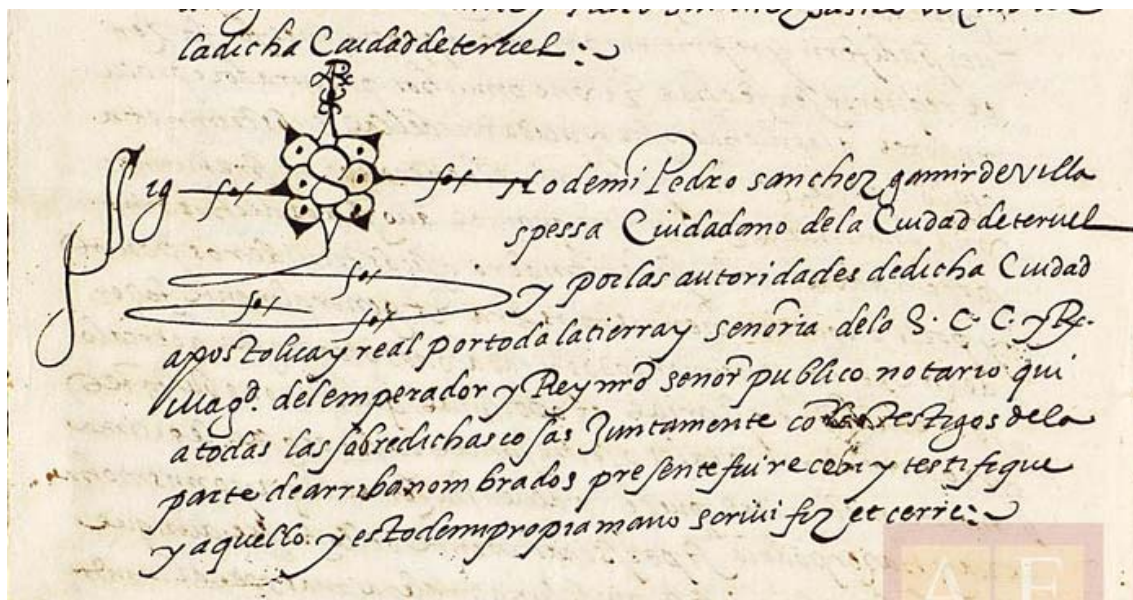 la dicha Ciudad de teruel :~
Sig no de mi Pedro sanchez gamir de villa
spessa Ciudadano de la Ciudad de teruel
y por las autoridades de dicha Ciudad
apostolica y real por toda la tierra y señoria de la S. C. C. y R.
Magd. del emperador y Rey nro señor publico notario qui
a todas las sobredichas cosas Juntamente con los testigos de la
parte de arriba nombrados presente fui recebi y testifique
y aquello y esto de mi propia mano scriui fiz et cerre :~
A E